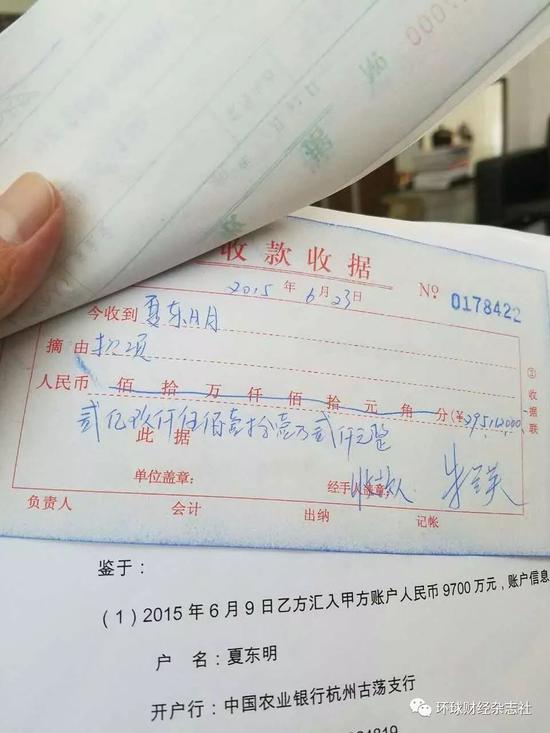 收款收据
2015 年 6 月 23 日
No 0178422
今收到 夏东明
摘由 款项
人民币 佰 拾 万 仟 佰 拾 元 角 分(¥295112000
贰亿玖仟伍佰壹拾壹万贰仟元整
此据
单位盖章: 经手人盖章: 收款人
负责人 会计 出纳 记帐
②收据联
鉴于:
(1)2015 年 6 月 9 日乙方汇入甲方账户人民币 9700 万元,账户信息
户 名:夏东明
开户行:中国农业银行杭州古荡支行
环球财经杂志社